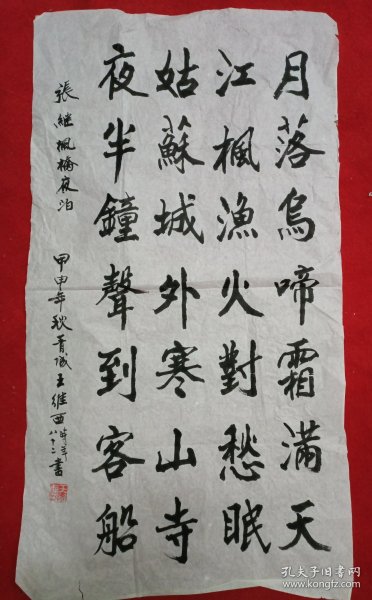 月落烏啼霜滿天
江楓漁火對愁眠
姑蘇城外寒山寺
夜半鐘聲到客船
張継楓橋夜泊
甲申年秋晋城王維西時年
八十二書
孔夫子旧书网